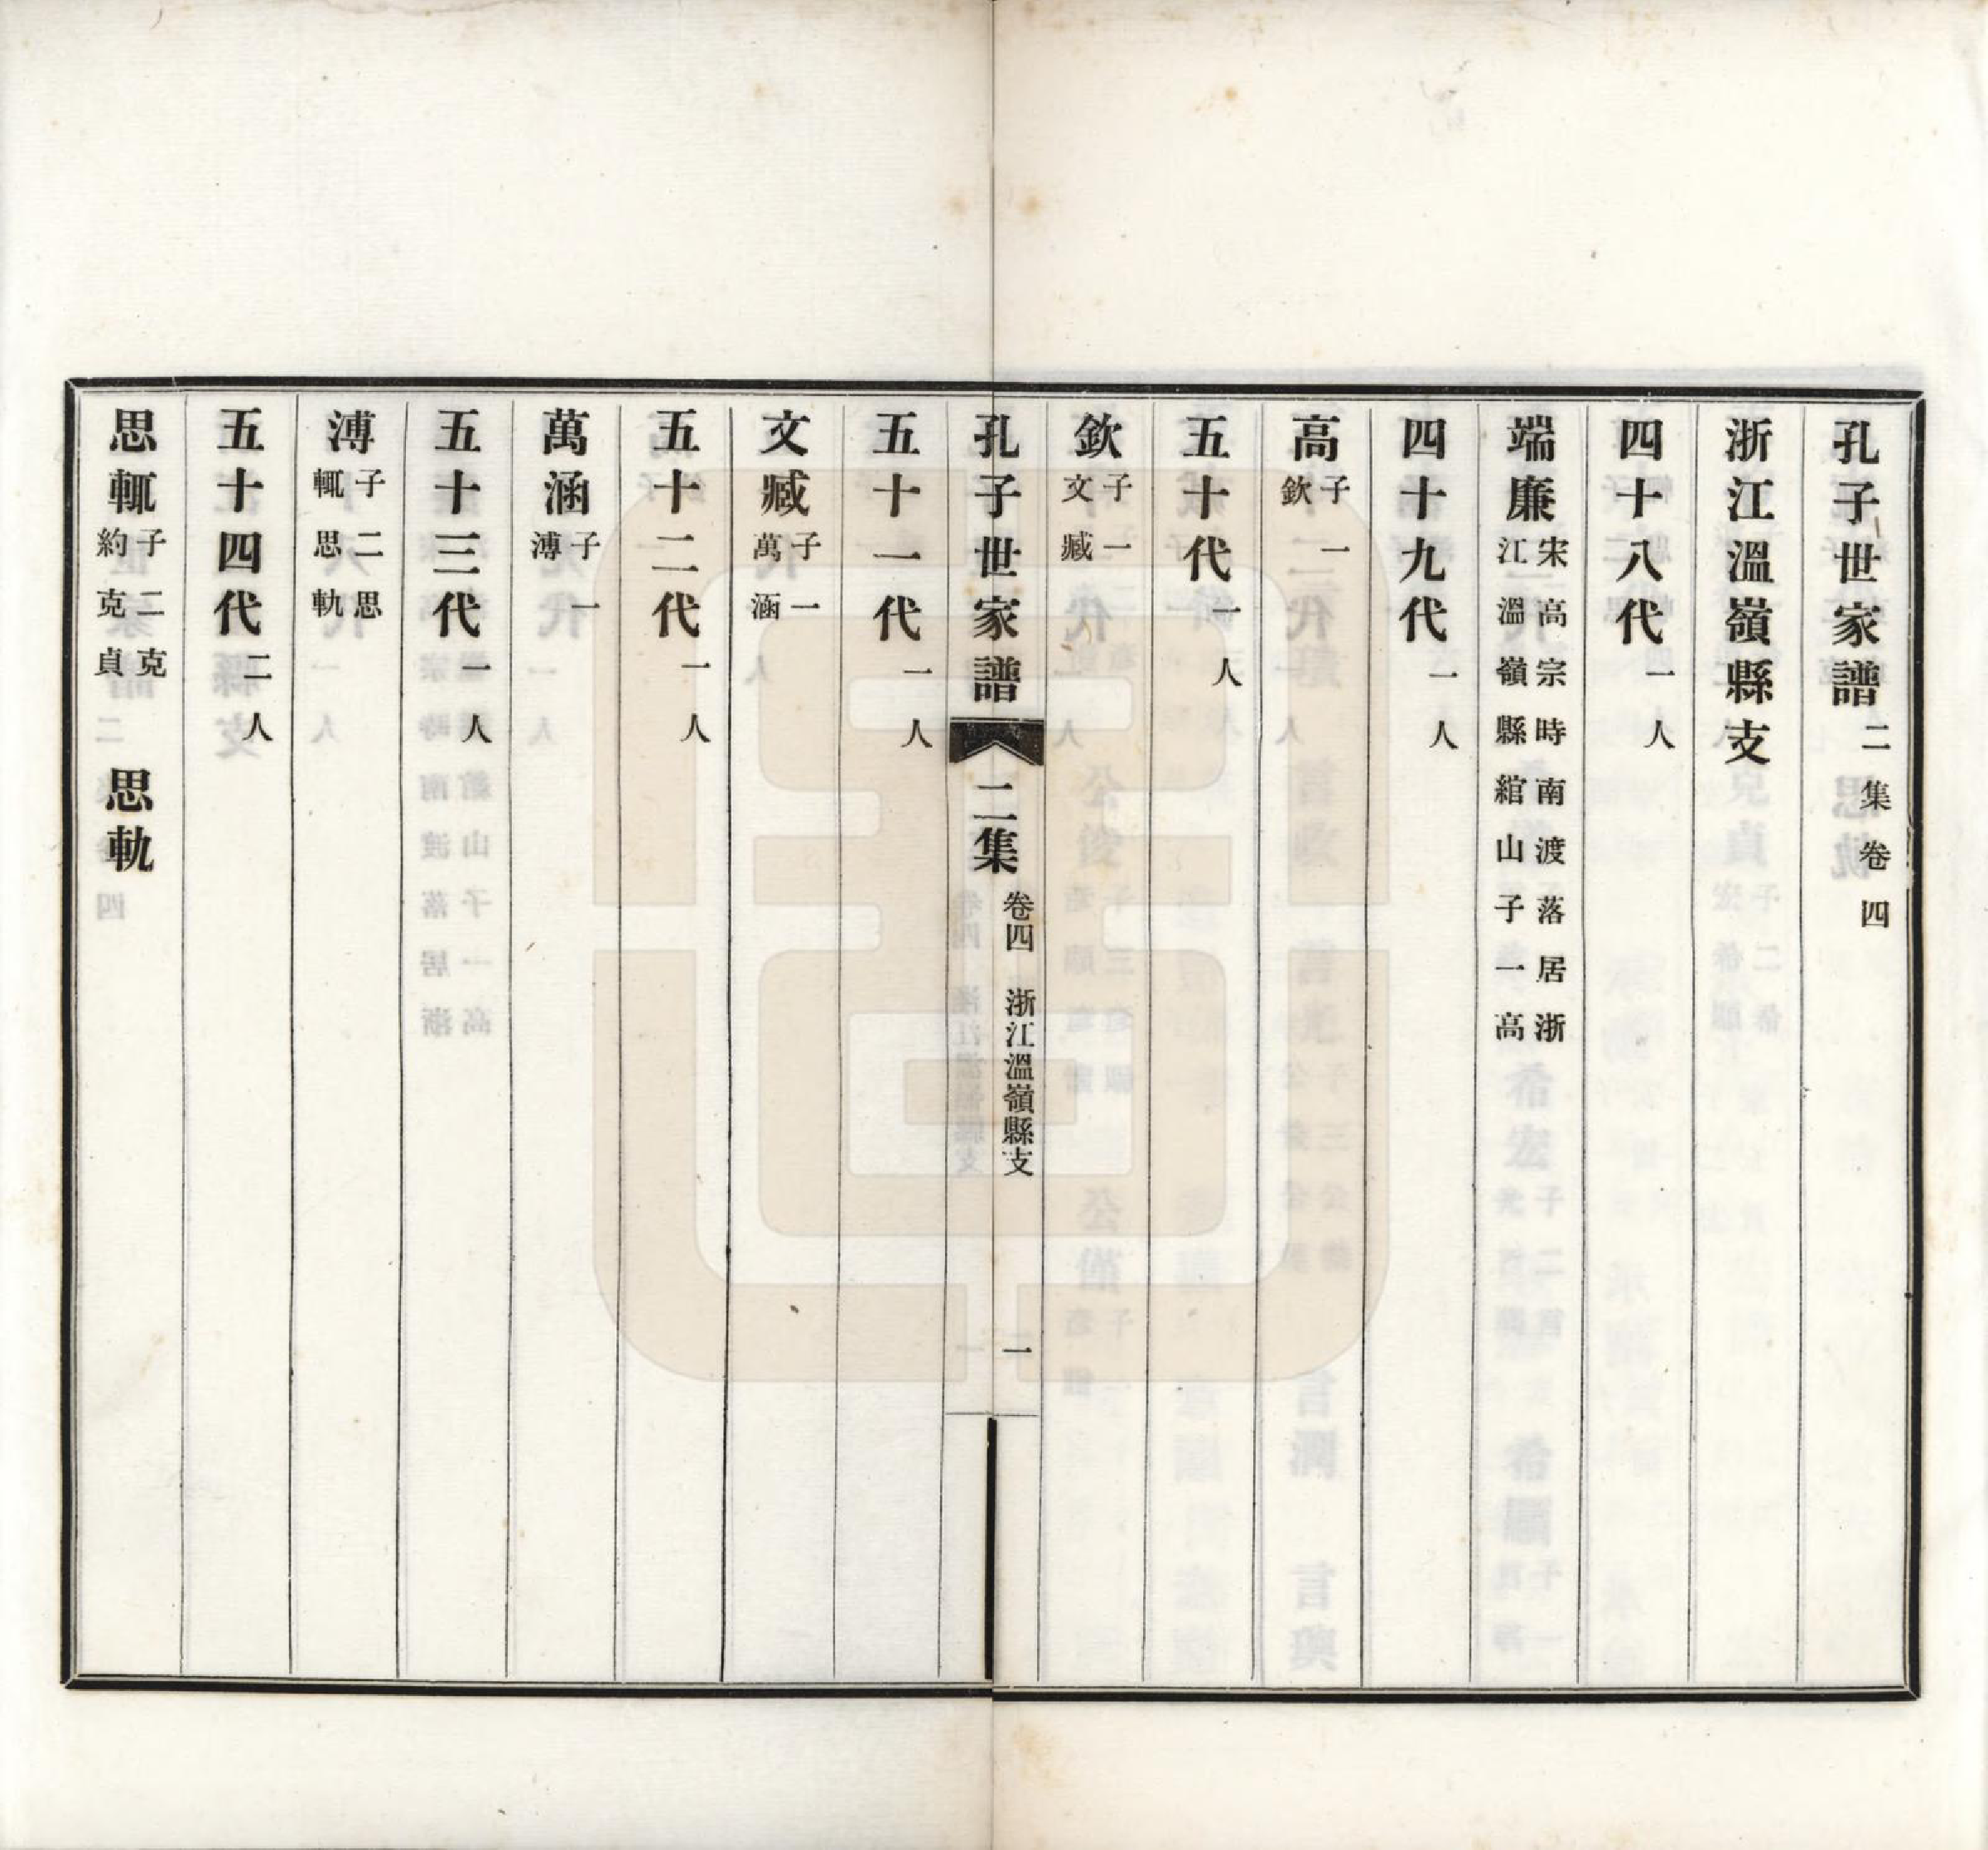 孔子世家譜二集卷四
浙江溫嶺縣支
四十八代一人
端廉宋高宗時南渡落居浙江溫嶺縣綰山子一高
四十九代一人
高子一欽
五十代一人
欽子一文臧
孔子世家譜 二集 卷四 浙江溫嶺縣支 一
五十一代一人
文臧子一萬涵
五十二代一人
萬涵子一溥
五十三代一人
溥子二思輒思軌
五十四代二人
思輒子二克約克貞 思軌